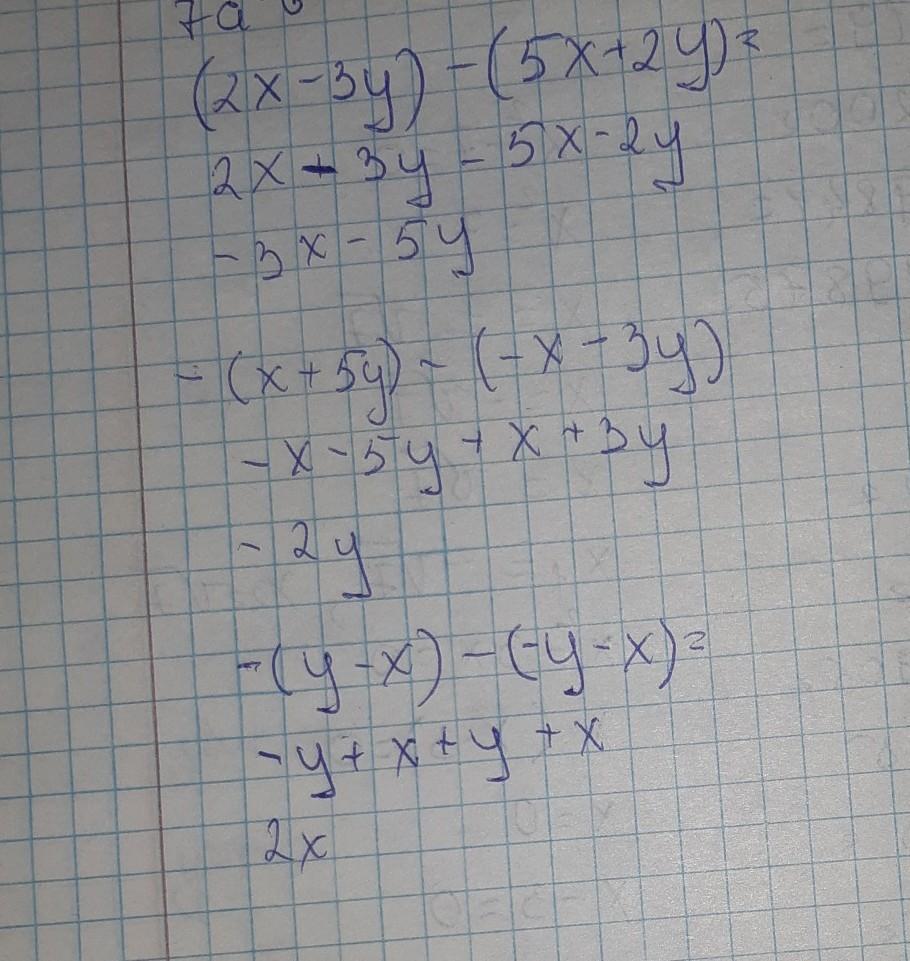 7a
(2x-3y)-(5x+2y)=
2x-3y-5x-2y
-3x-5y
-(x+5y)-(-x-3y)
-x-5y+x+3y
-2y
-(y-x)-(-y-x)=
-y+x+y+x
2x